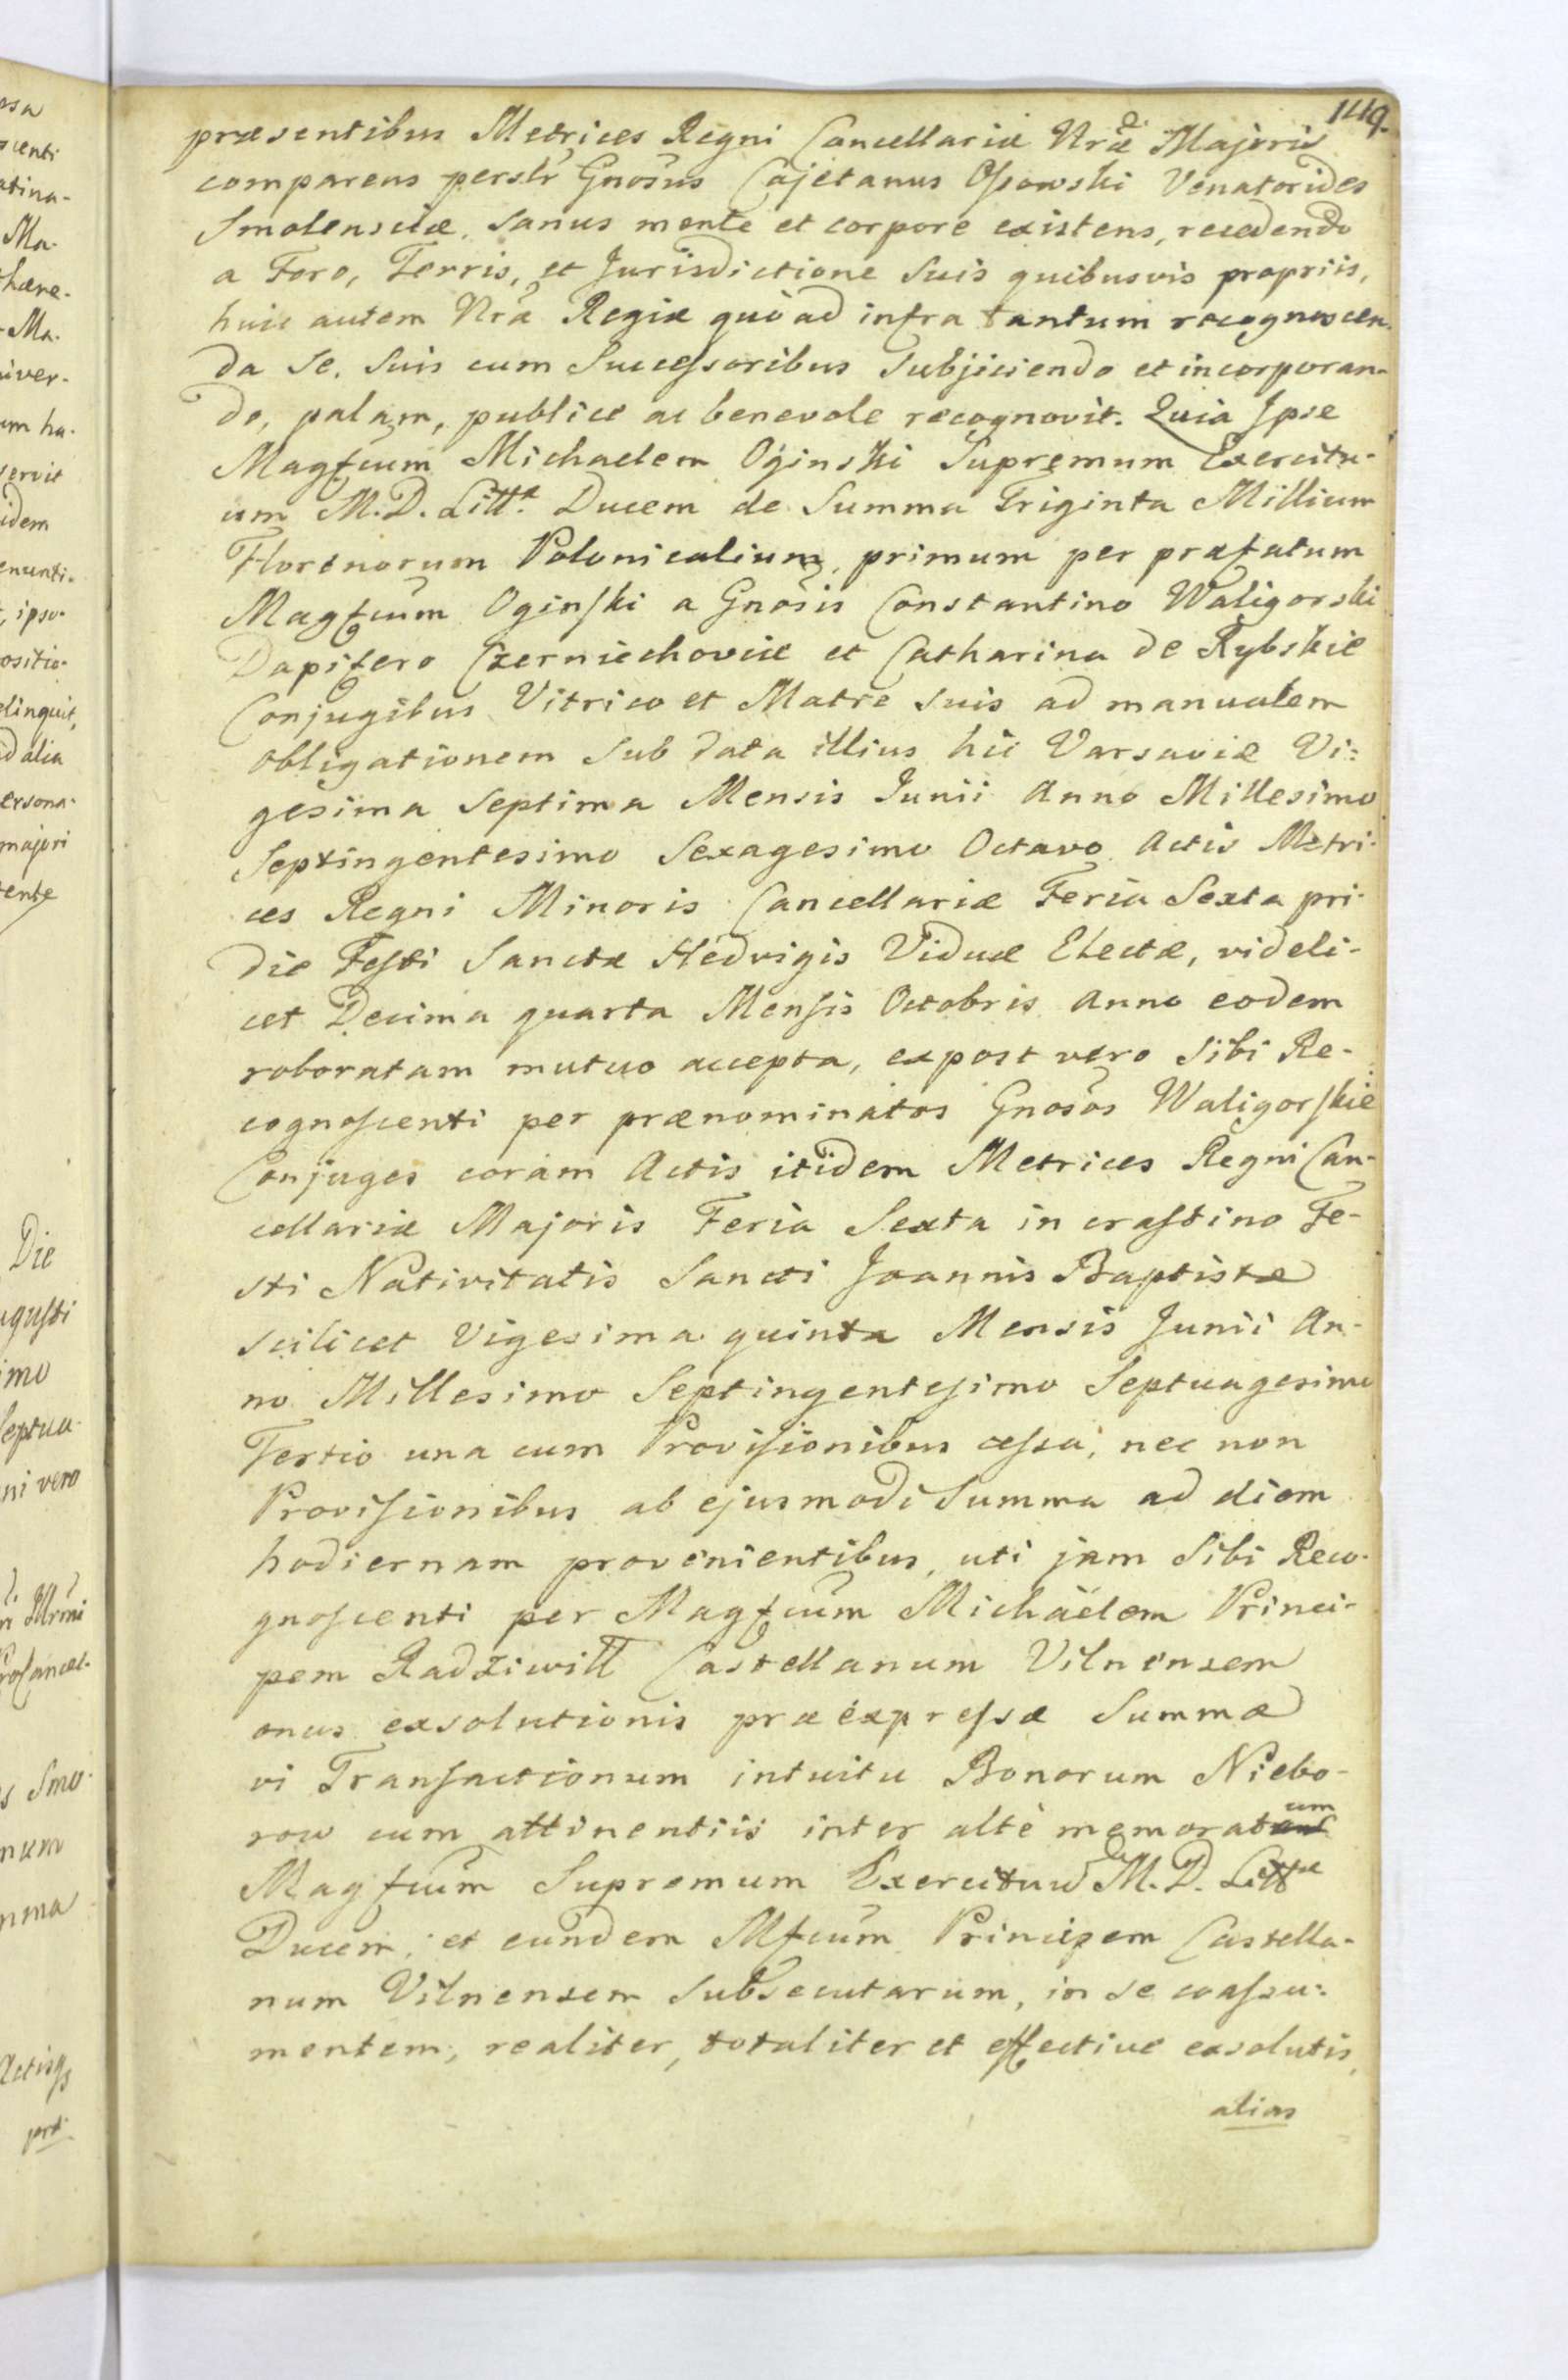 149.
præsentibus Metrices Regni Cancellariæ Nræ Majoris
comparens persłr Gnosus Cajetanus Ossowski Venatorides
Smolensciæ, Sanus mente et corpore existens, recedendo
a Foro, Terris, et Jurisdictione Suis quibusvis propriis,
huic autem Nræ Regiæ quò ad infra tantum recognoscen-
da Se, Suis cum Successoribus Subjiciendo et incorporan-
do, palam, publice ac benevole recognovit. Quia Ipse
Magfcum Michaelem Oginski Supremum Exercitu-
um M.D. Littæ Ducem de Summa Triginta Millium
Florenorum Polonicalium, primum per præfatum
Magfcum Oginski a Gnosis Constantino Waligorski
Dapifero Czerniechoviæ et Catharina de Rybskie
Conjugibus Vitrico et Matre Suis ad manualem
obligationem Sub data illius hic Varsaviæ Vi-
gesima Septima Mensis Junii Anno Millesimo
Septingentesimo Sexagesimo Octavo Actis Metri-
ces Regni Minoris Cancellariæ Feria Sexta pri-
die Festi Sanctæ Hedvigis Viduæ Electæ, videli-
cet Decima quarta Mensis Octobris Anno eodem
roboratam mutuo accepta, expost vero Sibi Re-
cognoscenti per prænominatos Gnosos Waligorskie
Conjuges coràm Actis itidem Metrices Regni Can-
cellariæ Majoris Feria Sexta in crastino Fe-
sti Nativitatis Sancti Joannis Baptistæ
scilicet Vigesima quinta Mensis Junii An-
no Millesimo Septingentesimo Septuagesimo
Tertio una cum Provisionibus cessa, nec non
Provisionibus ab ejusmodi Summa ad diem
hodiernam provenientibus, uti jam Sibi Reco-
gnoscenti per Magfcum Michäelem Princi-
pem Radziwiłł Castellanum Vilnensem
onus exsolutionis præexpressæ Summæ
vi Transactionum intuitu Bonorum Niebo-
row cum attinentiis inter altè memoratum
Magfcum Supremum Exercituu M.D. Littæ
Ducem, et eundem Mfcum Principem Castella-
num Vilnensem Subsecutarum, in Se coassu-
mentem, realiter, totaliter et effective exsolutis,
alias